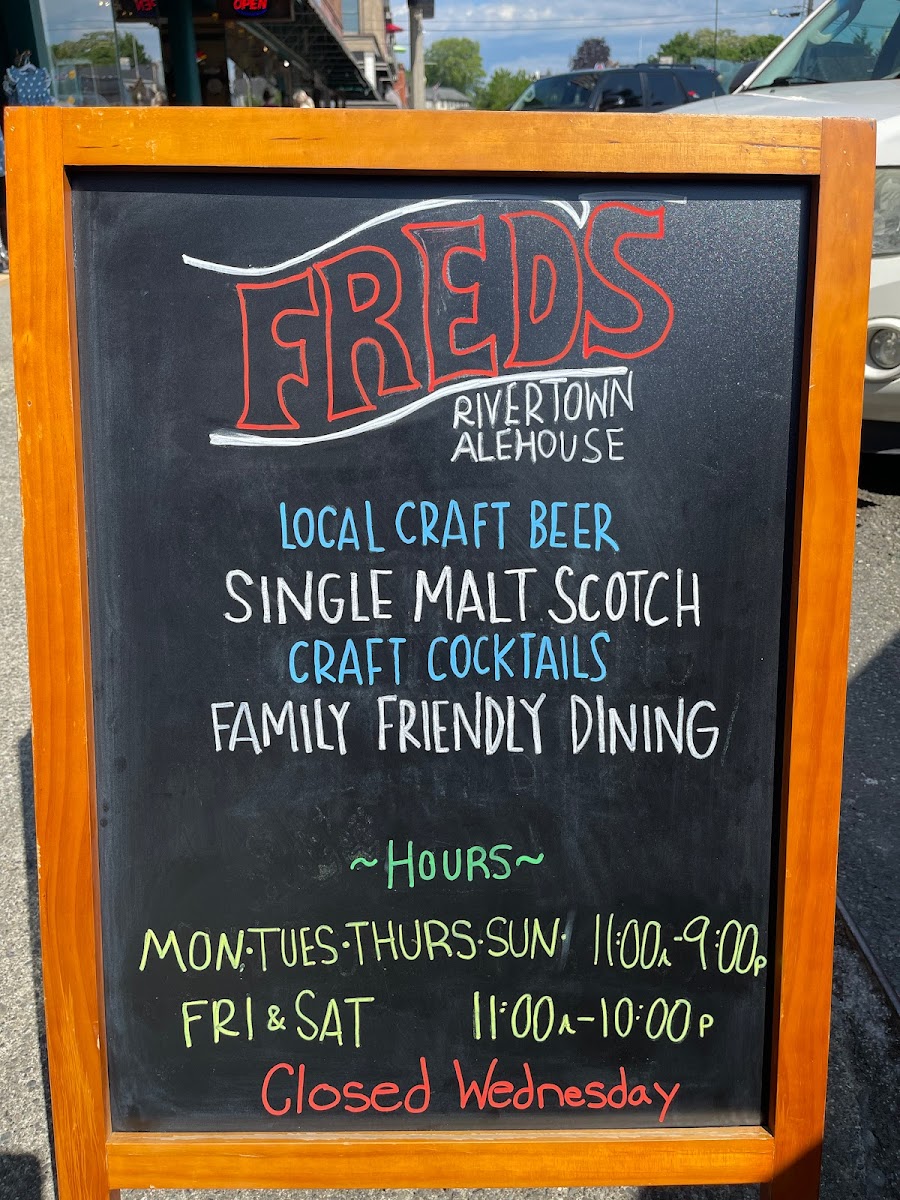 OPEN
FREDS
RIVERTOWN
ALEHOUSE
LOCAL CRAFT BEER
SINGLE MALT SCOTCH
CRAFT COCKTAILS
FAMILY FRIENDLY DINING
~HOURS~
MON·TUES·THURS·SUN· 11:00A-9:00P
FRI & SAT 11:00A-10:00P
Closed Wednesday